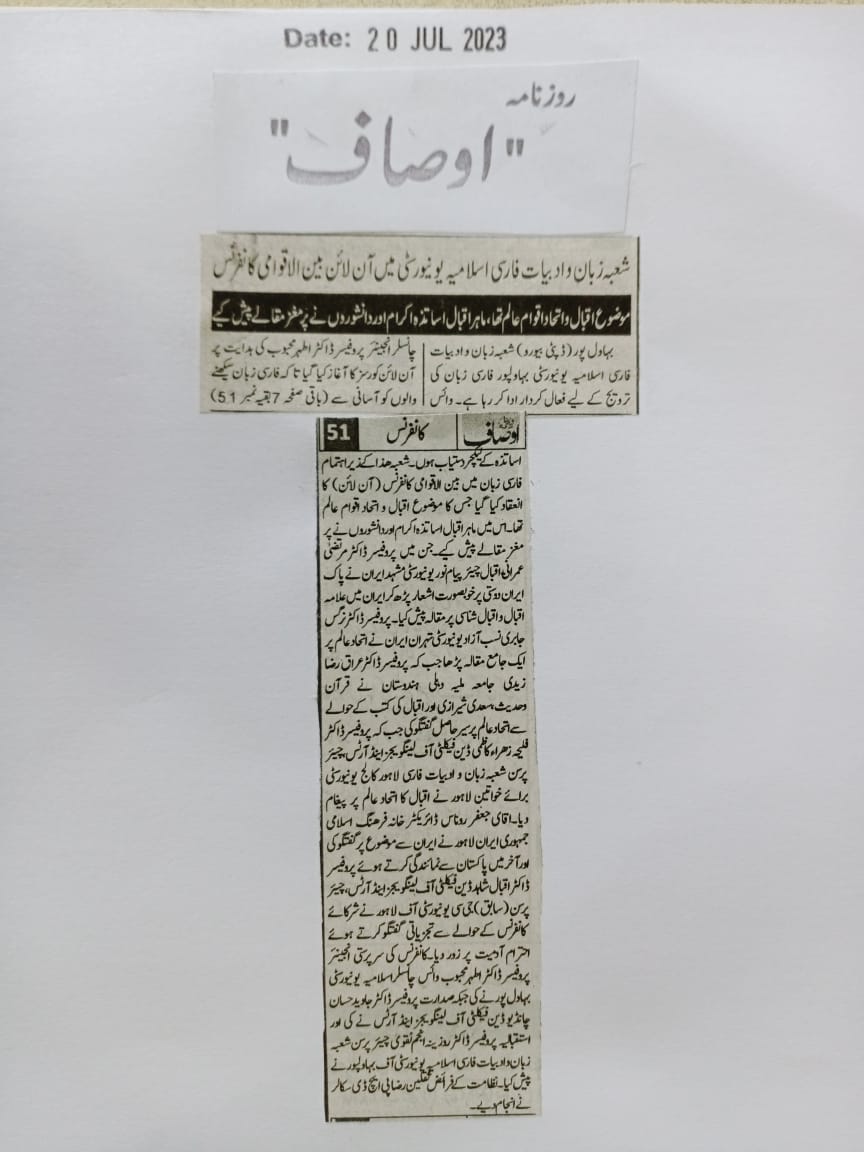 Date: 20 JUL 2023
روزنامہ
"اوصاف"
شعبہ زبان و ادبیات فارسی اسلامیہ یونیورسٹی میں آن لائن بین الاقوامی کانفرنس
موضوع اقبال و اتحاد اقوام عالم تھا، ماہر اقبال اساتذہ اکرام اور دانشوروں نے پر مغز مقالے پیش کیے
بہاول پور (ڈپٹی بیورو) شعبہ زبان و ادبیات
فارسی اسلامیہ یونیورسٹی بہاولپور فارسی زبان کی
ترویج کے لیے فعال کردار ادا کر رہا ہے۔ وائس
چانسلر انجینئر پروفیسر ڈاکٹر اطہر محبوب کی ہدایت پر
آن لائن کورسز کا آغاز کیا گیا تاکہ فارسی زبان سیکھنے
والوں کو آسانی سے (باقی صفحہ 7 بقیہ نمبر 51)
اوصاف کانفرنس 51
اساتذہ کے لیکچر دستیاب ہوں۔ شعبہ ھذا کے زیر اہتمام
فارسی زبان میں بین الاقوامی کانفرنس (آن لائن) کا
انعقاد کیا گیا جس کا موضوع اقبال و اتحاد اقوام عالم
تھا۔ اس میں ماہر اقبال اساتذہ اکرام اور دانشوروں نے پر
مغز مقالے پیش کیے۔ جن میں پروفیسر ڈاکٹر مرتضیٰ
عمرانی اقبال چیئر پیام نور یونیورسٹی مشہد ایران نے پاک
ایران دوستی پر خوبصورت اشعار پڑھ کر ایران میں علامہ
اقبال و اقبال شناسی پر مقالہ پیش کیا۔ پروفیسر ڈاکٹر نرگس
جابری نسب آزاد یونیورسٹی تہران ایران نے اتحاد عالم پر
ایک جامع مقالہ پڑھا جب کہ پروفیسر ڈاکٹر عراق رضا
زیدی جامعہ ملیہ دہلی ہندوستان نے قرآن
وحدیث، سعدی شیرازی اور اقبال کی کتب کے حوالے
سے اتحاد عالم پر سیر حاصل گفتگو کی جب کہ پروفیسر ڈاکٹر
فلیحہ زھراء کاظمی ڈین فیکلٹی آف لینگویجز اینڈ آرٹس، چیئر
پرسن شعبہ زبان و ادبیات فارسی لاہور کالج یونیورسٹی
برائے خواتین لاہور نے اقبال کا اتحاد عالم پر پیغام
دیا۔ اقای جعفر روناس ڈائریکٹر خانہ فرھنگ اسلامی
جمہوری ایران لاہور نے ایران سے موضوع پر گفتگو کی
اور آخر میں پاکستان سے نمائندگی کرتے ہوئے پروفیسر
ڈاکٹر اقبال شاہد ڈین فیکلٹی آف لینگویجز اینڈ آرٹس، چیئر
پرسن (سابق) جی سی یونیورسٹی آف لاہور نے شرکائے
کانفرنس کے حوالے سے تجزیاتی گفتگو کرتے ہوئے
احترام آدمیت پر زور دیا۔ کانفرنس کی سرپرستی انجینئر
پروفیسر ڈاکٹر اطہر محبوب وائس چانسلر اسلامیہ یونیورسٹی
بہاول پور نے کی جبکہ صدارت پروفیسر ڈاکٹر جاوید حسان
چانڈیو ڈین فیکلٹی آف لینگویجز اینڈ آرٹس نے کی اور
استقبالیہ پروفیسر ڈاکٹر روزینہ انجم نقوی چیئر پرسن شعبہ
زبان و ادبیات فارسی اسلامیہ یونیورسٹی آف بہاولپور نے
پیش کیا۔ نظامت کے فرائض ثقلین رضا پی ایچ ڈی سکالر
نے انجام دیے۔